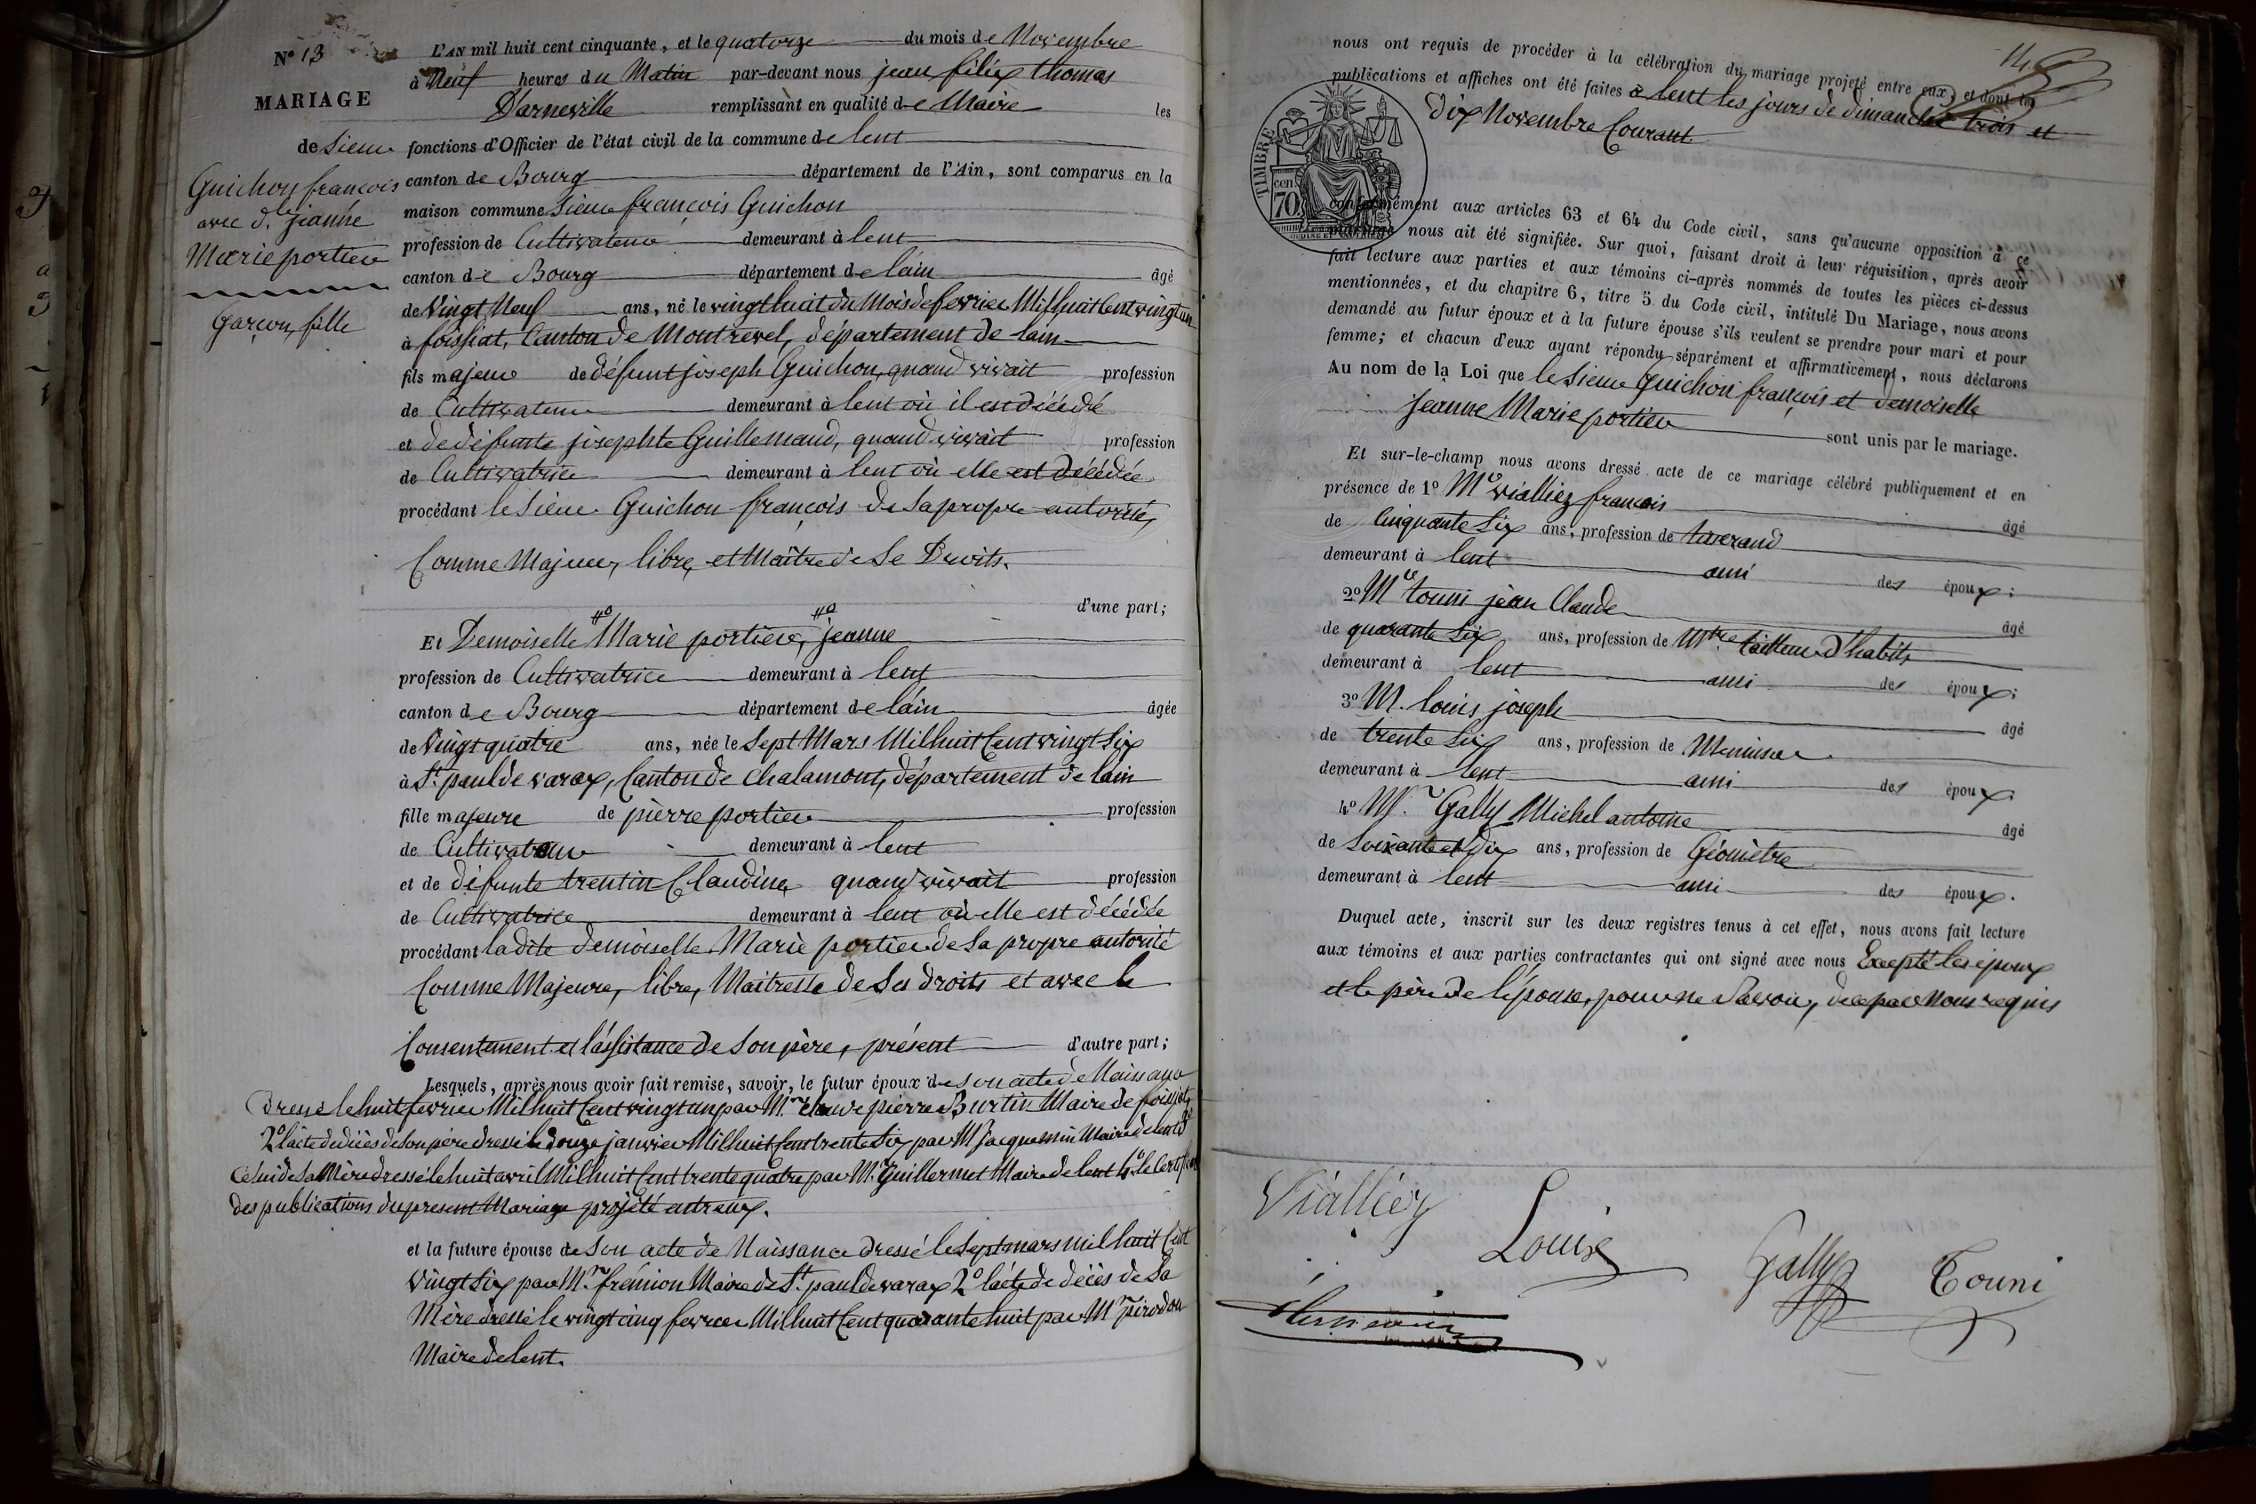 N° 13
MARIAGE
de Sieur
Guichon françois
avec d.lle jeanne
Marie portier
garçon, fille
L'AN mil huit cent cinquante, et le quatorze du mois de Novembre
à Neuf heures du Matin par-devant nous jean félix thomas
D'arneville remplissant en qualité de Maire les
fonctions d'Officier de l'état civil de la commune de lent
canton de Bourg département de l'Ain, sont comparus en la
maison commune Sieur françois Guichon
profession de Cultivateur demeurant à lent
canton de Bourg département de l'ain âgé
de Vingt Neuf ans, né le vingt huit du Mois de fevrier Mil huit Cent vingt un
à foissiat, Canton de Montrevel, département de l'ain
fils majeur de défunt joseph Guichon, quand vivait profession
de Cultivateur demeurant à lent où il est décédé
et de défunte josephte Guillemaud, quand vivait profession
de Cultivatrice demeurant à lent où elle est décédée
procédant le Sieur Guichon françois de sa propre autorité,
Comme Majeur, libre, et Maître de Se Droits.
d'une part;
Et Demoiselle Marie portier, jeanne
profession de Cultivatrice demeurant à lent
canton de Bourg département de l'ain âgée
de Vingt quatre ans, née le Sept Mars Mil huit Cent vingt Six
à St. paul de varax, Canton de chalamont, département de l'ain
fille majeure de pierre portier profession
de Cultivateur demeurant à lent
et de défunte trentin Claudine quand vivait profession
de Cultivatrice demeurant à lent où elle est décédée
procédant ladite Demoiselle Marie portier de Sa propre autorité
Comme Majeure, libre, Maitresse de Ses droits et avec le
Consentement et l'assistance de Son père, présent d'autre part;
Lesquels, après nous avoir fait remise, savoir, le futur époux de son acte de Naissance
Dressé le huit fevrier Mil huit Cent vingt un par M. claude pierre Burtin Maire de foissiat,
2° l'acte de décès de Son père dressé le douze janvier Mil huit Cent trente Six par M. Jacquemin Maire de lent 3°
Celui de Sa Mère dressé le huit avril Mil huit Cent trente quatre par M. Guillermet Maire de lent 4° le Certificat
des publications du present Mariage projeté entr'eux.
et la future épouse de Son acte de Naissance dressé le Sept mars mil huit Cent
Vingt Six par M. frémion Maire de St. paul de varax 2° l'acte de décès de Sa
Mère dressé le vingt cinq fevrier Mil huit Cent quarante huit par M. pirodon
Maire de lent.
nous ont requis de procéder à la célébration du mariage projeté entre eux, et dont les
publications et affiches ont été faites à lent les jours de dimanche trois et
dix Novembre Courant
TIMBRE
cen
70
conformément aux articles 63 et 64 du Code civil, sans qu'aucune opposition à ce
mariage nous ait été signifiée. Sur quoi, faisant droit à leur réquisition, après avoir
fait lecture aux parties et aux témoins ci-après nommés de toutes les pièces ci-dessus
mentionnées, et du chapitre 6, titre 5 du Code civil, intitulé Du Mariage, nous avons
demandé au futur époux et à la future épouse s'ils veulent se prendre pour mari et pour
femme; et chacun d'eux ayant répondu séparément et affirmativement, nous déclarons
Au nom de la Loi que le Sieur Guichon françois et demoiselle
Jeanne Marie portier sont unis par le mariage.
Et sur-le-champ nous avons dressé acte de ce mariage célébré publiquement et en
présence de 1° M. vialliez françois âgé
de Cinquante Six ans, profession de tisserand
demeurant à lent ami des époux;
2° M. touni jean Claude âgé
de quarante Six ans, profession de Mtre tailleur d'habits
demeurant à lent ami des époux;
3° M. louis joseph âgé
de trente Six ans, profession de Menuisier
demeurant à lent ami des époux
4° M. Gally Michel antoine âgé
de Soixante et dix ans, profession de Géomètre
demeurant à lent ami des époux.
Duquel acte, inscrit sur les deux registres tenus à cet effet, nous avons fait lecture
aux témoins et aux parties contractantes qui ont signé avec nous Excepté les époux
et le père de l'épouse, pour ne Savoir, de ce par Nous requis
Vialliez
Louis
Gally
Touni